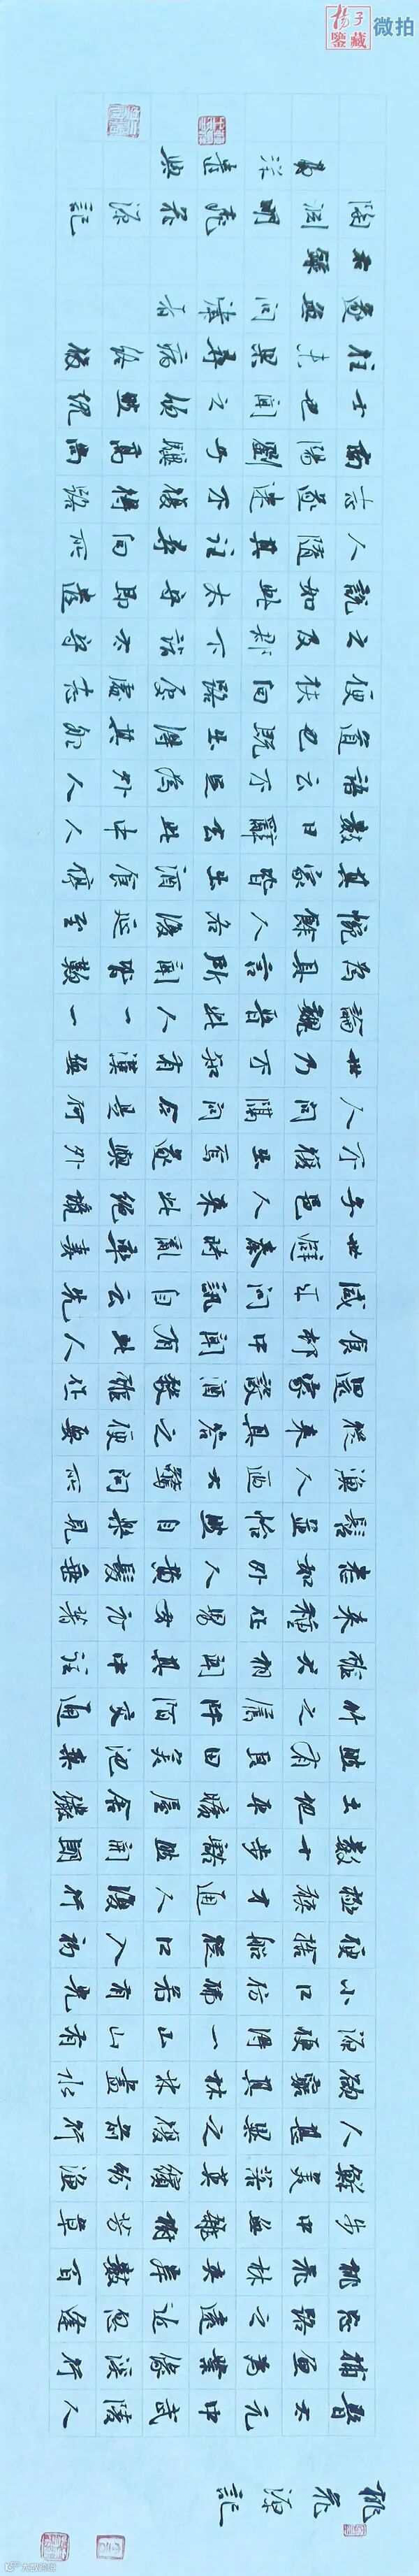 桃花源記
晉太元中武陵人
捕魚為業緣溪行
忘路之遠近忽逢
桃花林夾岸數百
步中無雜樹芳草
鮮美落英繽紛漁
人甚異之復前行
欲窮其林林盡水
源便得一山山有
小口彷彿若有光
便捨船從口入初
極狹才通人復行
數十步豁然開朗
土地平曠屋舍儼
然有良田美池桑
竹之屬阡陌交通
雞犬相聞其中往
來種作男女衣著
悉如外人黃髮垂
髫並怡然自樂見
漁人乃大驚問所
從來具答之便要
還家設酒殺雞作
食村中聞有此人
咸來問訊自云先
世避秦時亂率妻
子邑人來此絕境
不復出焉遂與外
人間隔問今是何
世乃不知有漢無
論魏晉此人一一
為具言所聞皆歎
惋餘人各復延至
其家皆出酒食停
數日辭去此中人
語云不足為外人
道也既出得其船
便扶向路處處誌
之及郡下詣太守
說如此太守即遣
人隨其往尋向所
志遂迷不復得路
南陽劉子驥高尚
士也聞之欣然規
往未果尋病終後
遂無問津者
右錄
陶淵明桃花源記
揚子鑒藏
微拍